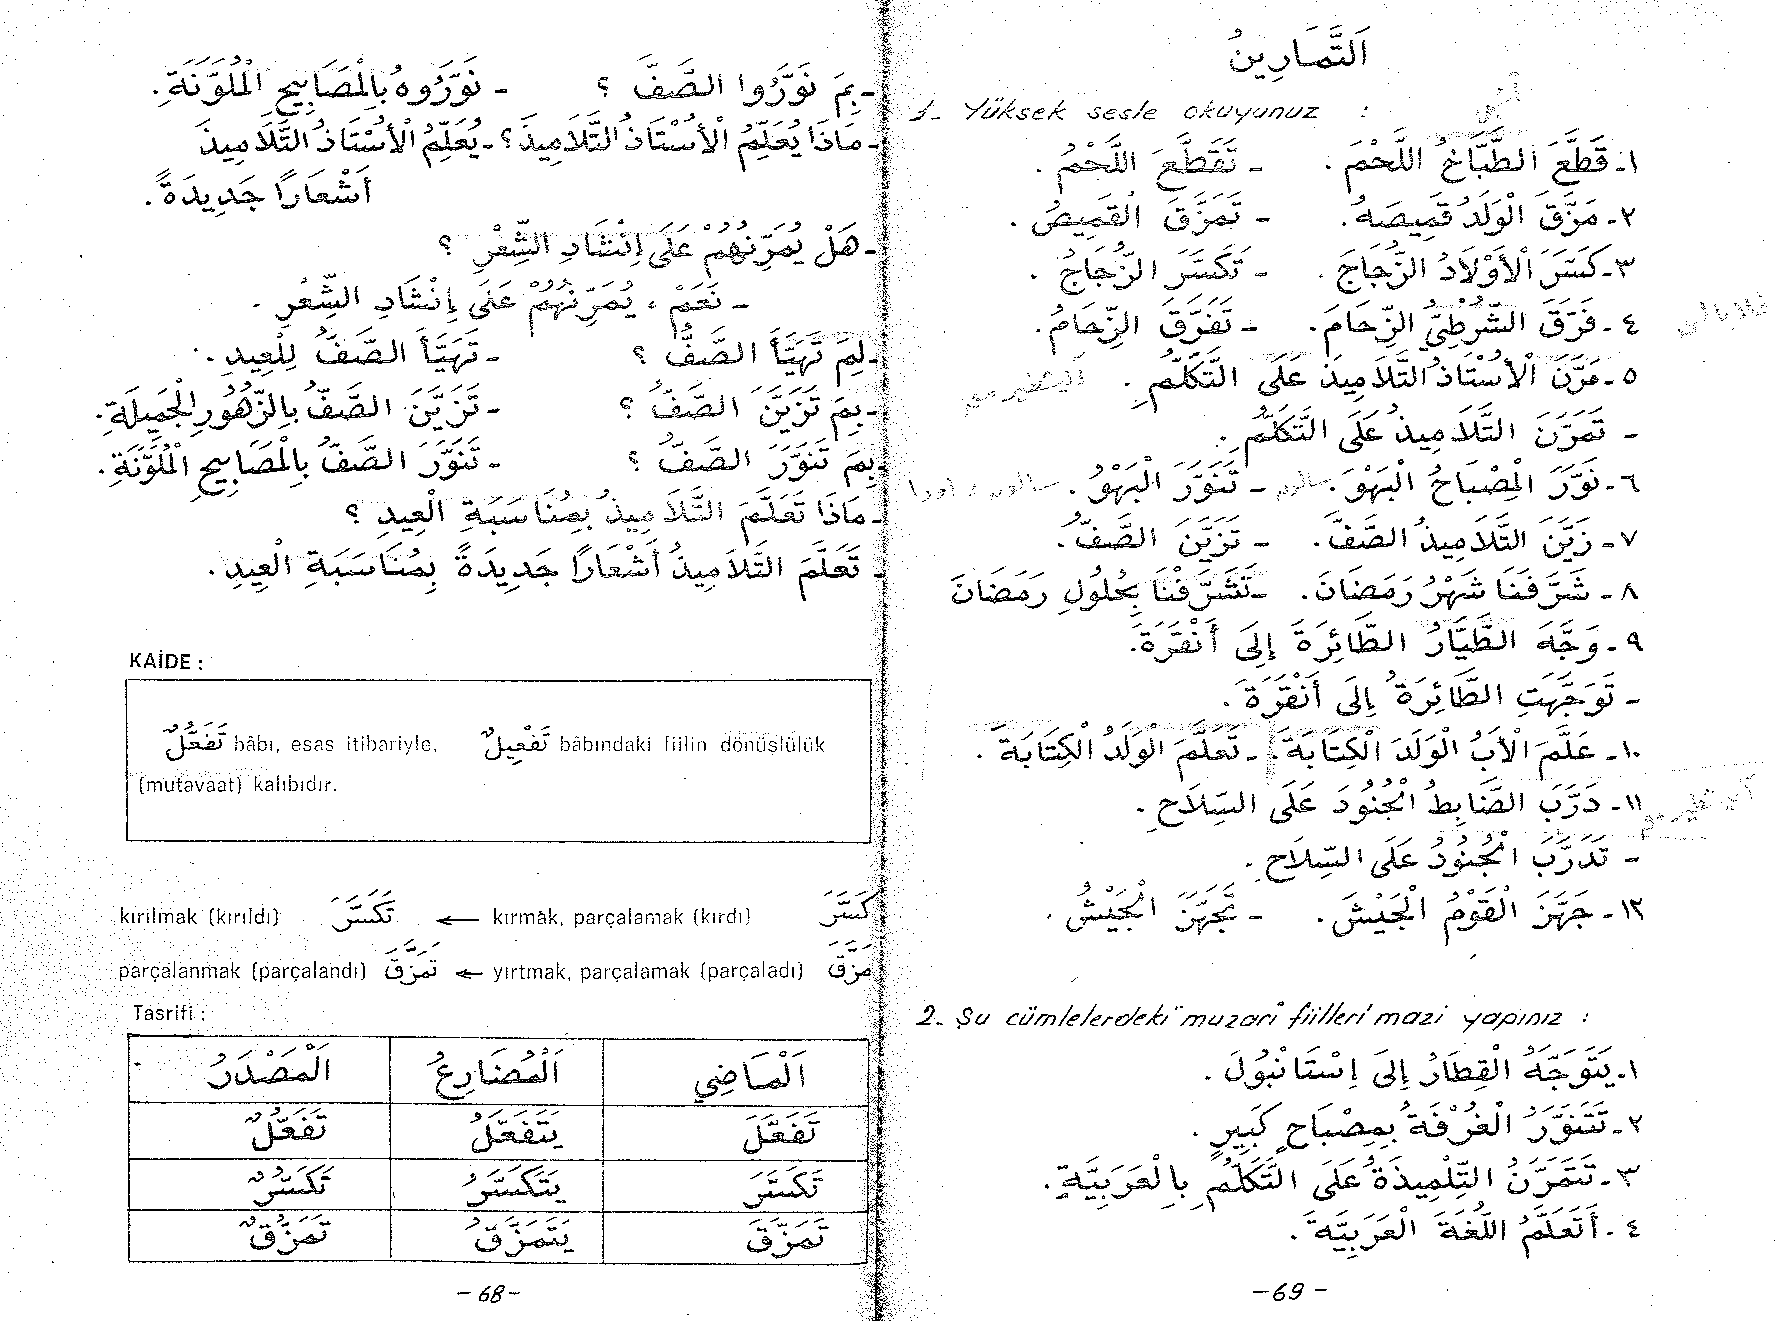 - بِمَ نَوَّرُوا الصَّفَّ ؟ - نَوَّرُوهُ بِالْمَصَابِيحِ الْمُلَوَّنَةِ.
- مَاذَا يُعَلِّمُ الْأُسْتَاذُ التَّلَامِيذَ؟ - يُعَلِّمُ الْأُسْتَاذُ التَّلَامِيذَ
أَشْعَارًا جَدِيدَةً.
- هَلْ يُمَرِّنُهُمْ عَلَى إِنْشَادِ الشِّعْرِ ؟
- نَعَمْ ، يُمَرِّنُهُمْ عَلَى إِنْشَادِ الشِّعْرِ .
- لِمَ تَهَيَّأَ الصَّفُّ ؟ - تَهَيَّأَ الصَّفُّ لِلْعِيدِ .
- بِمَ تَزَيَّنَ الصَّفُّ ؟ - تَزَيَّنَ الصَّفُّ بِالزُّهُورِ الْجَمِيلَةِ.
بِمَ تَنَوَّرَ الصَّفُّ ؟ - تَنَوَّرَ الصَّفُّ بِالْمَصَابِيحِ الْمُلَوَّنَةِ.
- مَاذَا تَعَلَّمَ التَّلَامِيذُ بِمُنَاسَبَةِ الْعِيدِ ؟
- تَعَلَّمَ التَّلَامِيذُ أَشْعَارًا جَدِيدَةً بِمُنَاسَبَةِ الْعِيدِ.
KAİDE :
تَفَعُّلٌ bâbı, esas itibariyle, تَفْعِيلٌ bâbındaki fiilin dönüşlülük
(mutavaat) kalıbıdır.
kırılmak (kırıldı) تَكَسَّرَ ← kırmak, parçalamak (kırdı) كَسَّرَ
parçalanmak (parçalandı) تَمَزَّقَ ← yırtmak, parçalamak (parçaladı) مَزَّقَ
Tasrifi :
اَلْمَاضِي اَلْمُضَارِعُ اَلْمَصْدَرُ
تَفَعَّلَ يَتَفَعَّلُ تَفَعُّلٌ
تَكَسَّرَ يَتَكَسَّرُ تَكَسُّرٌ
تَمَزَّقَ يَتَمَزَّقُ تَمَزُّقٌ
- 68 -
اَلتَّمَارِينُ
1. Yüksek sesle okuyunuz :
١- قَطَّعَ الطَّبَّاخُ اللَّحْمَ . - تَقَطَّعَ اللَّحْمُ .
٢- مَزَّقَ الْوَلَدُ قَمِيصَهُ. - تَمَزَّقَ الْقَمِيصُ .
٣- كَسَّرَ الْأَوْلَادُ الزُّجَاجَ . - تَكَسَّرَ الزُّجَاجُ .
٤- فَرَّقَ الشُّرْطِيُّ الزِّحَامَ. - تَفَرَّقَ الزِّحَامُ.
٥- مَرَّنَ الْأُسْتَاذُ التَّلَامِيذَ عَلَى التَّكَلُّمِ .
- تَمَرَّنَ التَّلَامِيذُ عَلَى التَّكَلُّمِ.
٦- نَوَّرَ الْمِصْبَاحُ الْبَهْوَ. - تَنَوَّرَ الْبَهْوُ.
٧- زَيَّنَ التَّلَامِيذُ الصَّفَّ. - تَزَيَّنَ الصَّفُّ.
٨- شَرَّفَنَا شَهْرُ رَمَضَانَ. - تَشَرَّفْنَا بِحُلُولِ رَمَضَانَ
٩- وَجَّهَ الطَّيَّارُ الطَّائِرَةَ إِلَى أَنْقَرَةَ.
- تَوَجَّهَتِ الطَّائِرَةُ إِلَى أَنْقَرَةَ .
١٠- عَلَّمَ الْأَبُ الْوَلَدَ الْكِتَابَةَ. - تَعَلَّمَ الْوَلَدُ الْكِتَابَةَ .
١١- دَرَّبَ الضَّابِطُ الْجُنُودَ عَلَى السِّلَاحِ .
- تَدَرَّبَ الْجُنُودُ عَلَى السِّلَاحِ .
١٢- جَهَّزَ الْقَوْمُ الْجَيْشَ . - تَجَهَّزَ الْجَيْشُ .
2. Şu cümlelerdeki muzari fiilleri mazi yapınız :
١- يَتَوَجَّهُ الْقِطَارُ إِلَى إِسْتَانْبُولَ .
٢- تَتَنَوَّرُ الْغُرْفَةُ بِمِصْبَاحٍ كَبِيرٍ .
٣- تَتَمَرَّنُ التِّلْمِيذَةُ عَلَى التَّكَلُّمِ بِالْعَرَبِيَّةِ .
٤- أَتَعَلَّمُ اللُّغَةَ الْعَرَبِيَّةَ .
- 69 -